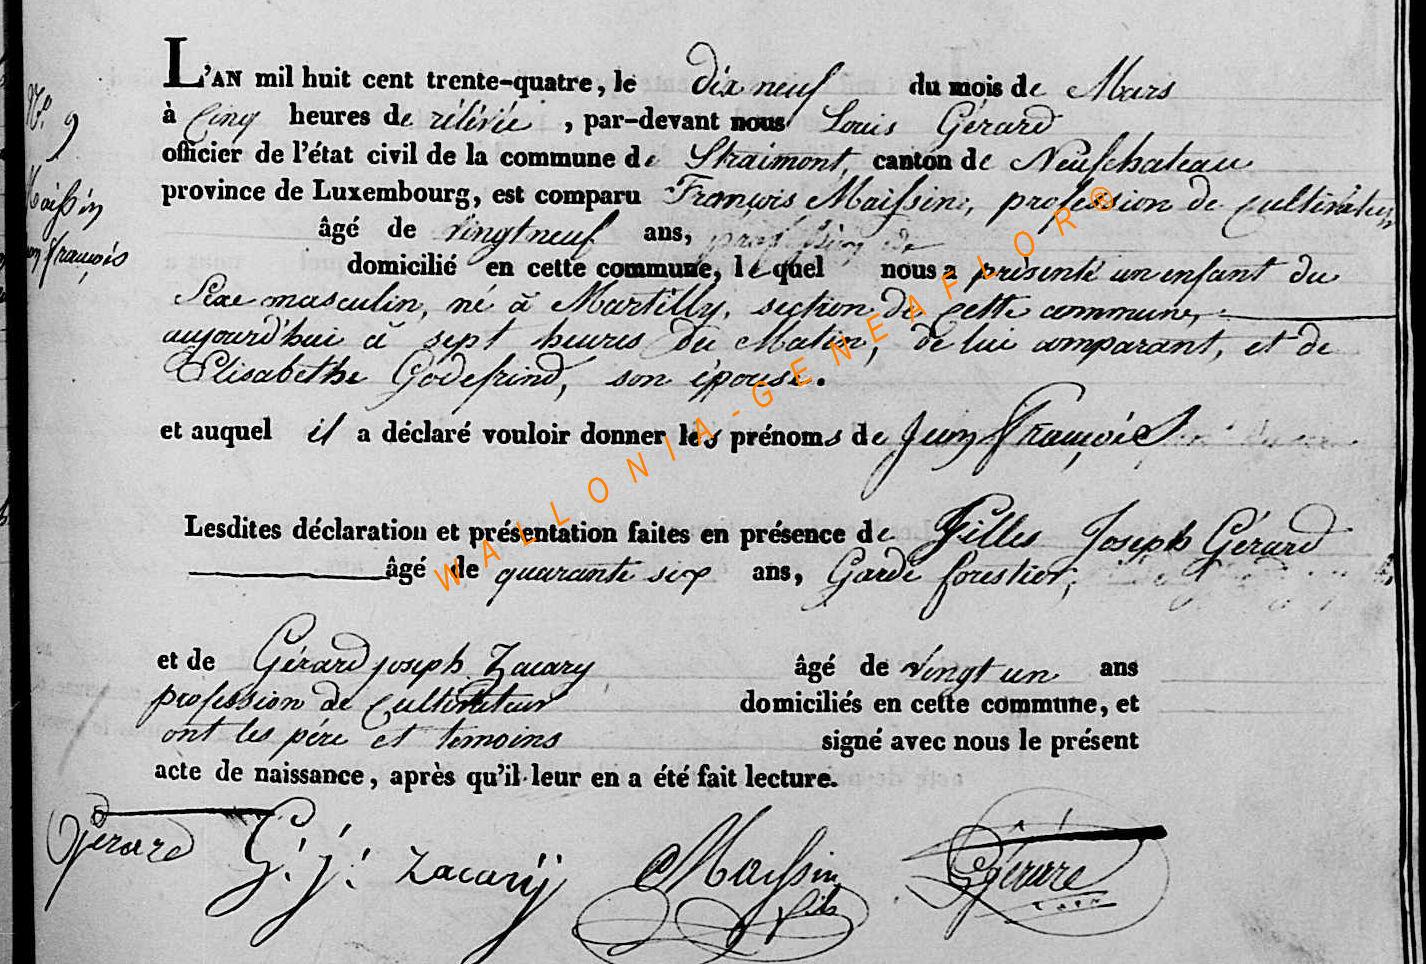 L'AN mil huit cent trente-quatre, le dix neuf du mois de Mars
à Cinq heures de rélévée, par-devant nous Louis Gérard
officier de l'état civil de la commune de Straimont, canton de Neufchateau
province de Luxembourg, est comparu François Maissin, profession de cultivateur
âgé de vingt neuf ans,
domicilié en cette commune, lequel nous a présenté un enfant du
Sexe masculin, né à Martilly, section de cette commune,
aujourd'hui à sept heures du Matin, de lui comparant, et de
Elisabethe Godefrind, son épouse.
et auquel il a déclaré vouloir donner les prénoms de Jean François
Lesdites déclaration et présentation faites en présence de Gilles Joseph Gérard
âgé de quarante six ans, Garde forestier,
et de Gérard joseph Zacary âgé de vingt un ans
profession de Cultivateur domiciliés en cette commune, et
ont les père et temoins signé avec nous le présent
acte de naissance, après qu'il leur en a été fait lecture.
Gérard G. j. Zacarÿ Maissin Gérard
fils
N° 9
Maissin
Jean françois
WALLONIA-GENEAFLOR®